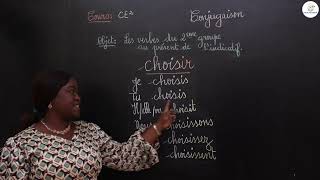 Cours: CE2 Conjugaison
Objet: Les verbes du 2ème groupe
au présent de l'indicatif.
choisir
Je choisis
Tu choisis
Il/elle choisit
Nous choisissons
choisissez
choisissent